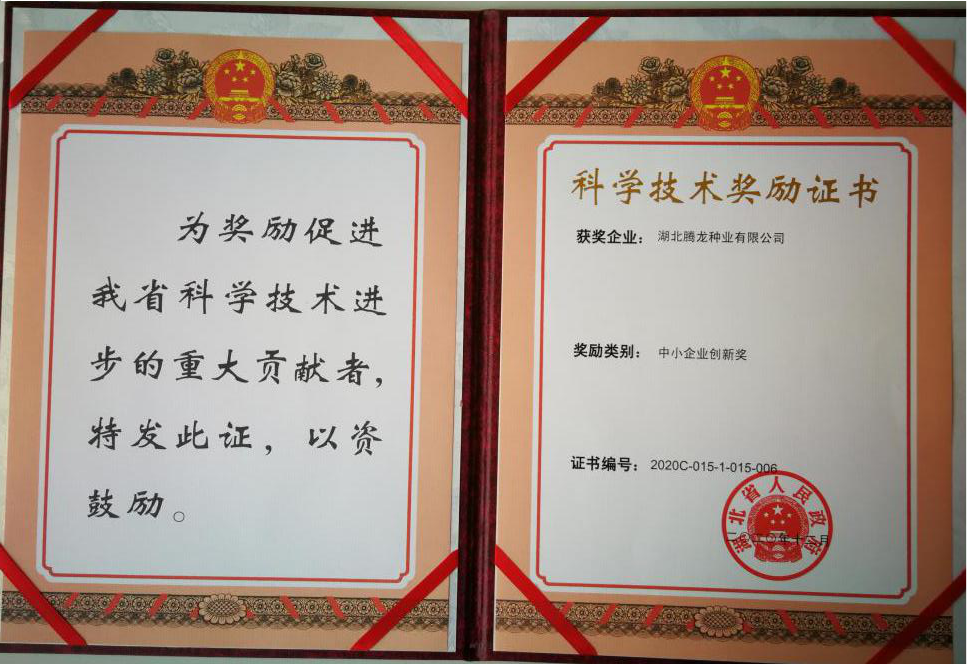 为奖励促进
我省科学技术进
步的重大贡献者，
特发此证，以资
鼓励。
科学技术奖励证书
获奖企业： 湖北腾龙种业有限公司
奖励类别： 中小企业创新奖
证书编号： 2020C-015-1-015-006
湖北省人民政府
二〇二〇年十二月